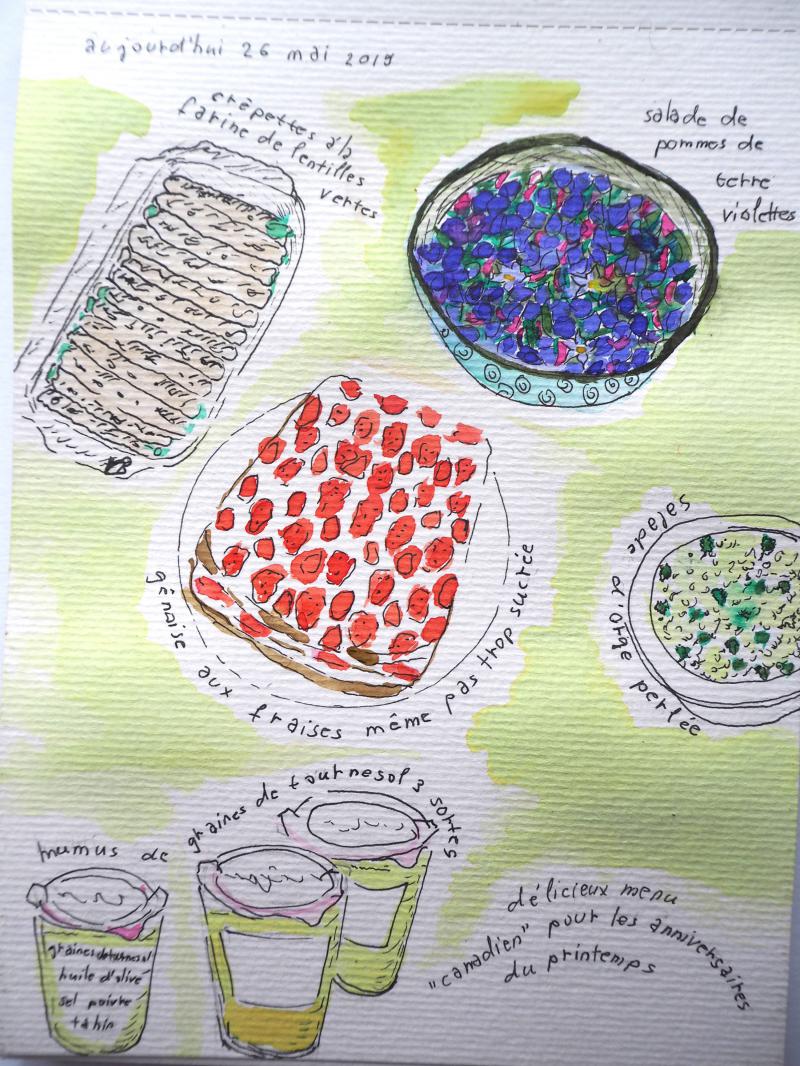 aujourd'hui 26 mai 2019
crêpettes à la
farine de lentilles
vertes
salade de
pommes de
terre
violettes
génoise aux fraises même pas trop sucrée
salade d'orge perlée
humus de graines de tournesol 3 sortes
graines de tournesol
huile d'olive
sel poivre
tahin
délicieux menu
"canadien" pour les anniversaires
du printemps